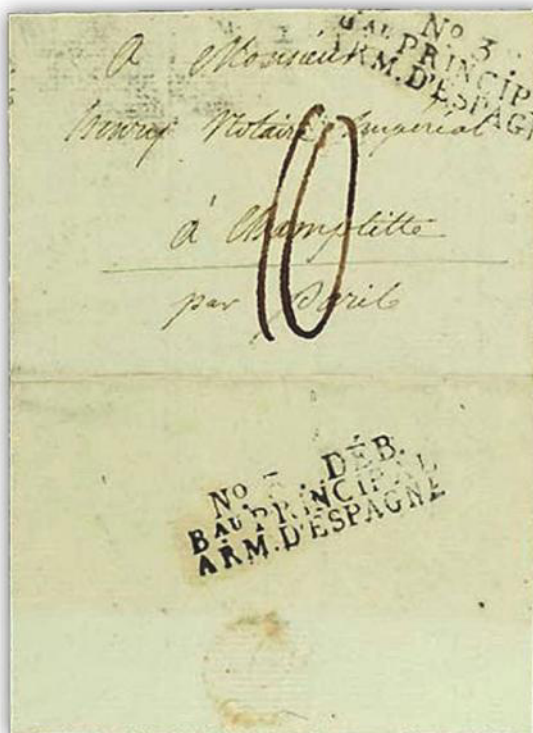 No 3
Bau PRINCIP
ARM. D'ESPAGN
A Monsieur
henry Notaire Impérial
10
à Champlitte
par paris
No 3 DÉB.
Bau PRINCIPAL
ARM. D'ESPAGNE